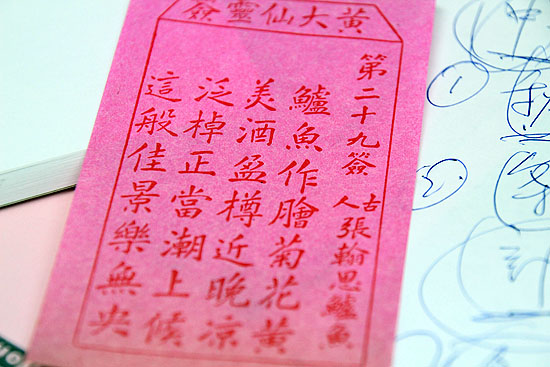 黃大仙靈簽
第二十九簽 古人張翰思鱸魚
鱸魚作膾菊花黃
美酒盈樽近晚涼
泛棹正當潮上候
這般佳景樂無央
①